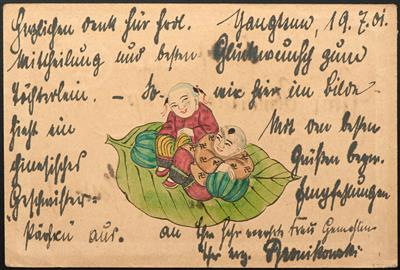 Herzlichen Dank für frdl. Yangtsun, 19.7.01.
Mitteilung und besten Glückwunsch zum
Töchterlein. – So wie hier im Bilde
sieht ein
chinesisches
Geschwister-
"Pärchen" aus.
Mit den besten
Grüßen bezw.
Empfehlungen
an Ihre sehr verehrte Frau Gemahlin
Ihr erg. Bronikowski